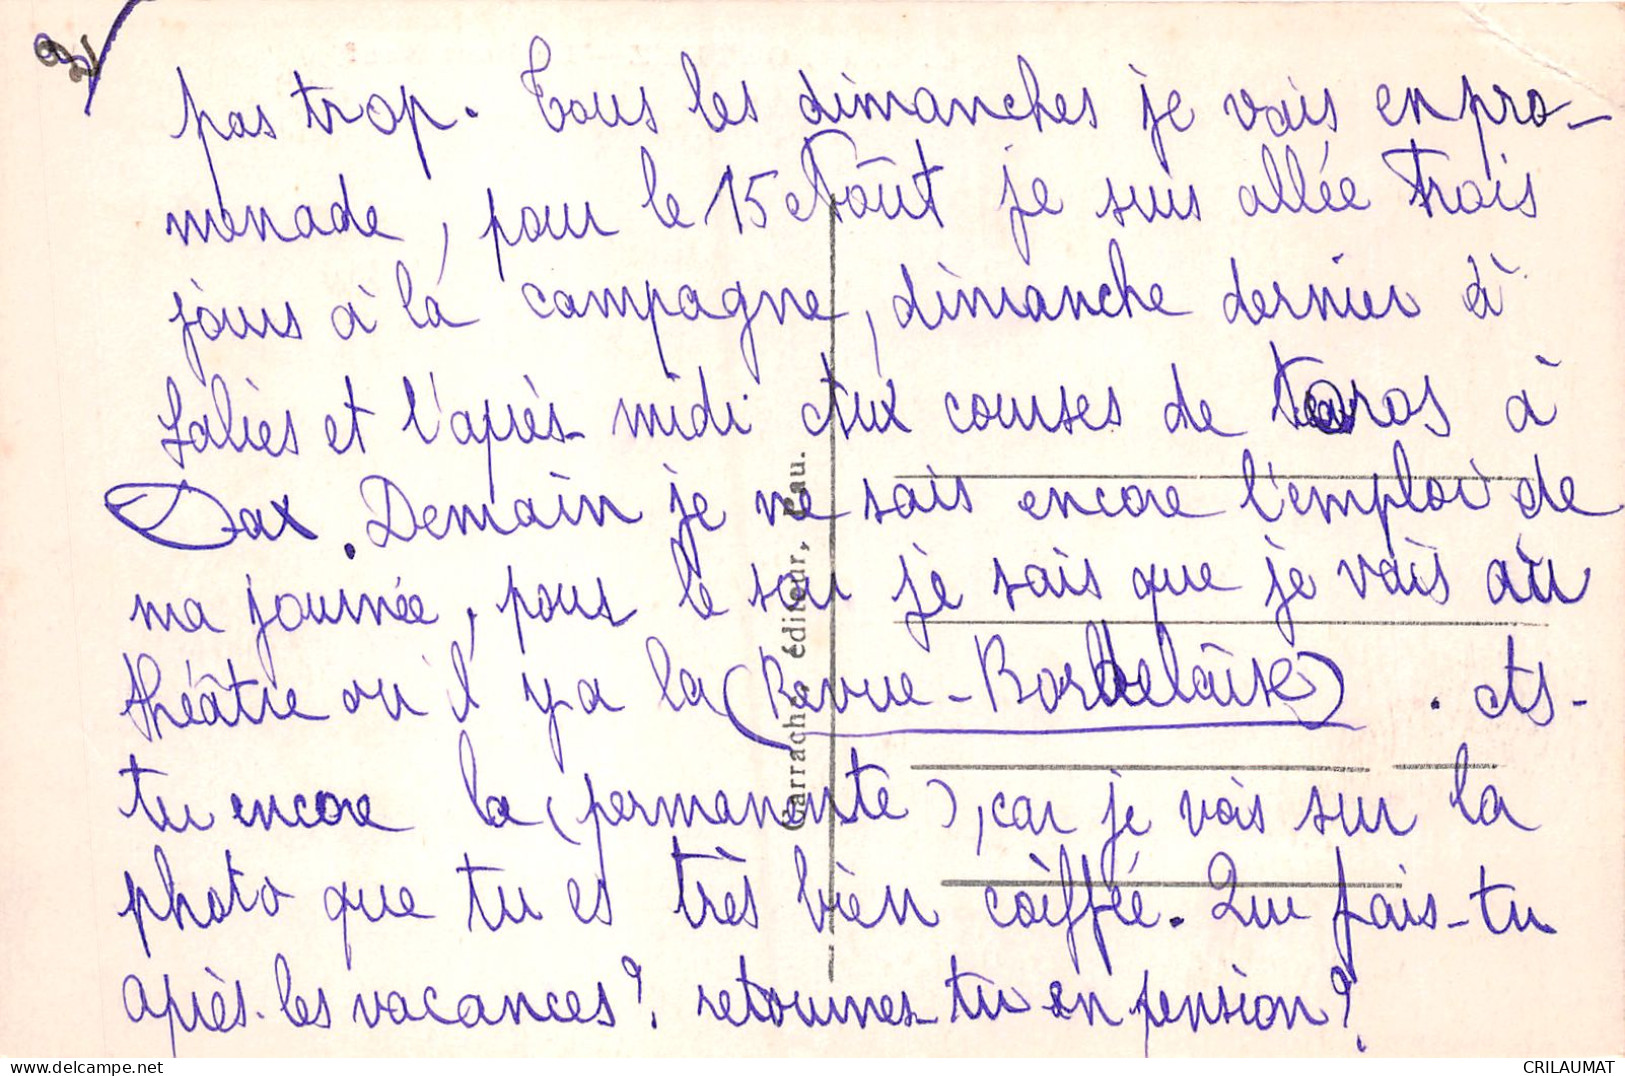 2)
pas trop. Tous les dimanches je vais en pro-
menade, pour le 15 Août je suis allée trois
jours à la campagne, dimanche dernier à
Salies et l'après-midi Aux courses de toros à
Dax. Demain je ne sais encore l'emploi de
ma journée, pour le soir je sais que je vais au
théâtre où il y a la (Revue-Bordelaise). As-
tu encore la (permanente), car je vois sur la
photo que tu es très bien coiffée. Que fais-tu
après les vacances? retournes-tu en pension?
Carrache, éditeur, Pau.
CRILAUMAT